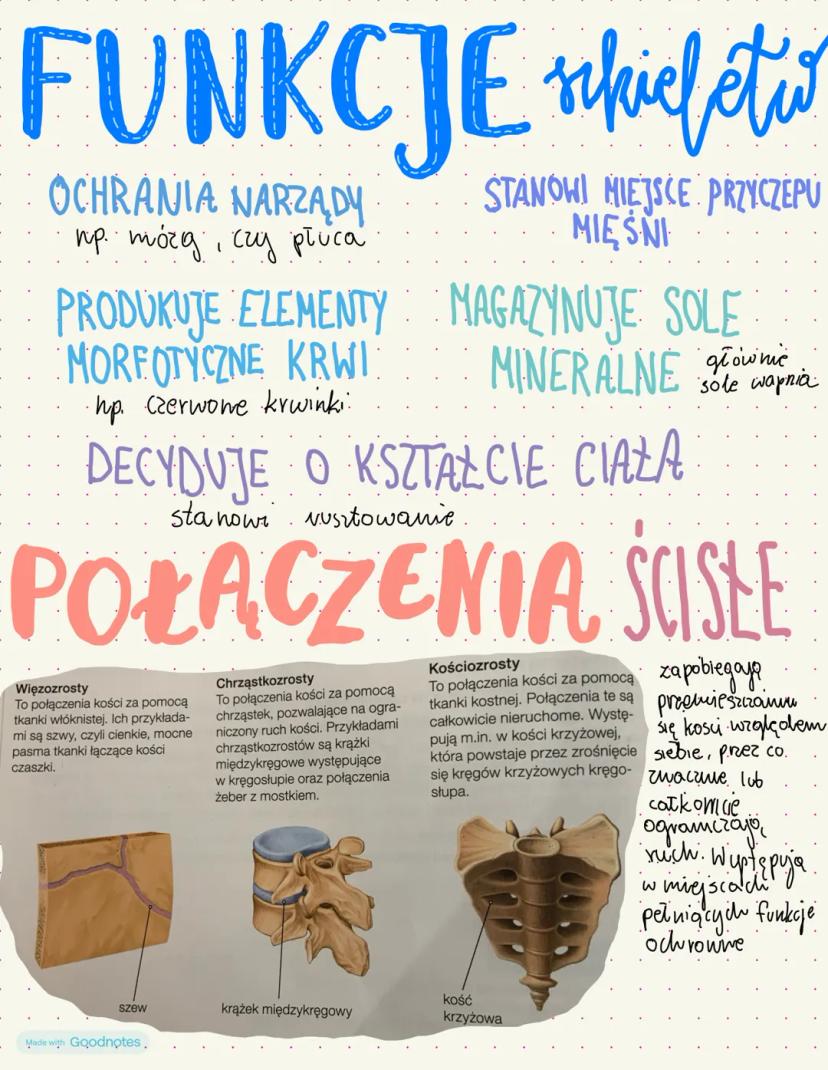 FUNKCJE szkieletu
OCHRANIA NARZĄDY
np. mózg, czy płuca
STANOWI MIEJSCE PRZYCZEPU
MIĘŚNI
PRODUKUJE ELEMENTY
MORFOTYCZNE KRWI
np. czerwone krwinki
MAGAZYNUJE SOLE
MINERALNE głównie
sole wapnia
DECYDUJE O KSZTAŁCIE CIAŁA
stanowi rusztowanie
POŁĄCZENIA ŚCISŁE
Więzozrosty
To połączenia kości za pomocą
tkanki włóknistej. Ich przykłada-
mi są szwy, czyli cienkie, mocne
pasma tkanki łączące kości
czaszki.
szew
Chrząstkozrosty
To połączenia kości za pomocą
chrząstek, pozwalające na ogra-
niczony ruch kości. Przykładami
chrząstkozrostów są krążki
międzykręgowe występujące
w kręgosłupie oraz połączenia
żeber z mostkiem.
krążek międzykręgowy
Kościozrosty
To połączenia kości za pomocą
tkanki kostnej. Połączenia te są
całkowicie nieruchome. Wystę-
pują m.in. w kości krzyżowej,
która powstaje przez zrośnięcie
się kręgów krzyżowych kręgo-
słupa.
kość
krzyżowa
zapobiegają
przemieszczaniu
się kości względem
siebie, przez co
znacznie lub
całkowicie
ograniczają
ruch. Wyptępują
w miejscach
pełniących funkcje
ochronne
Made with Goodnotes